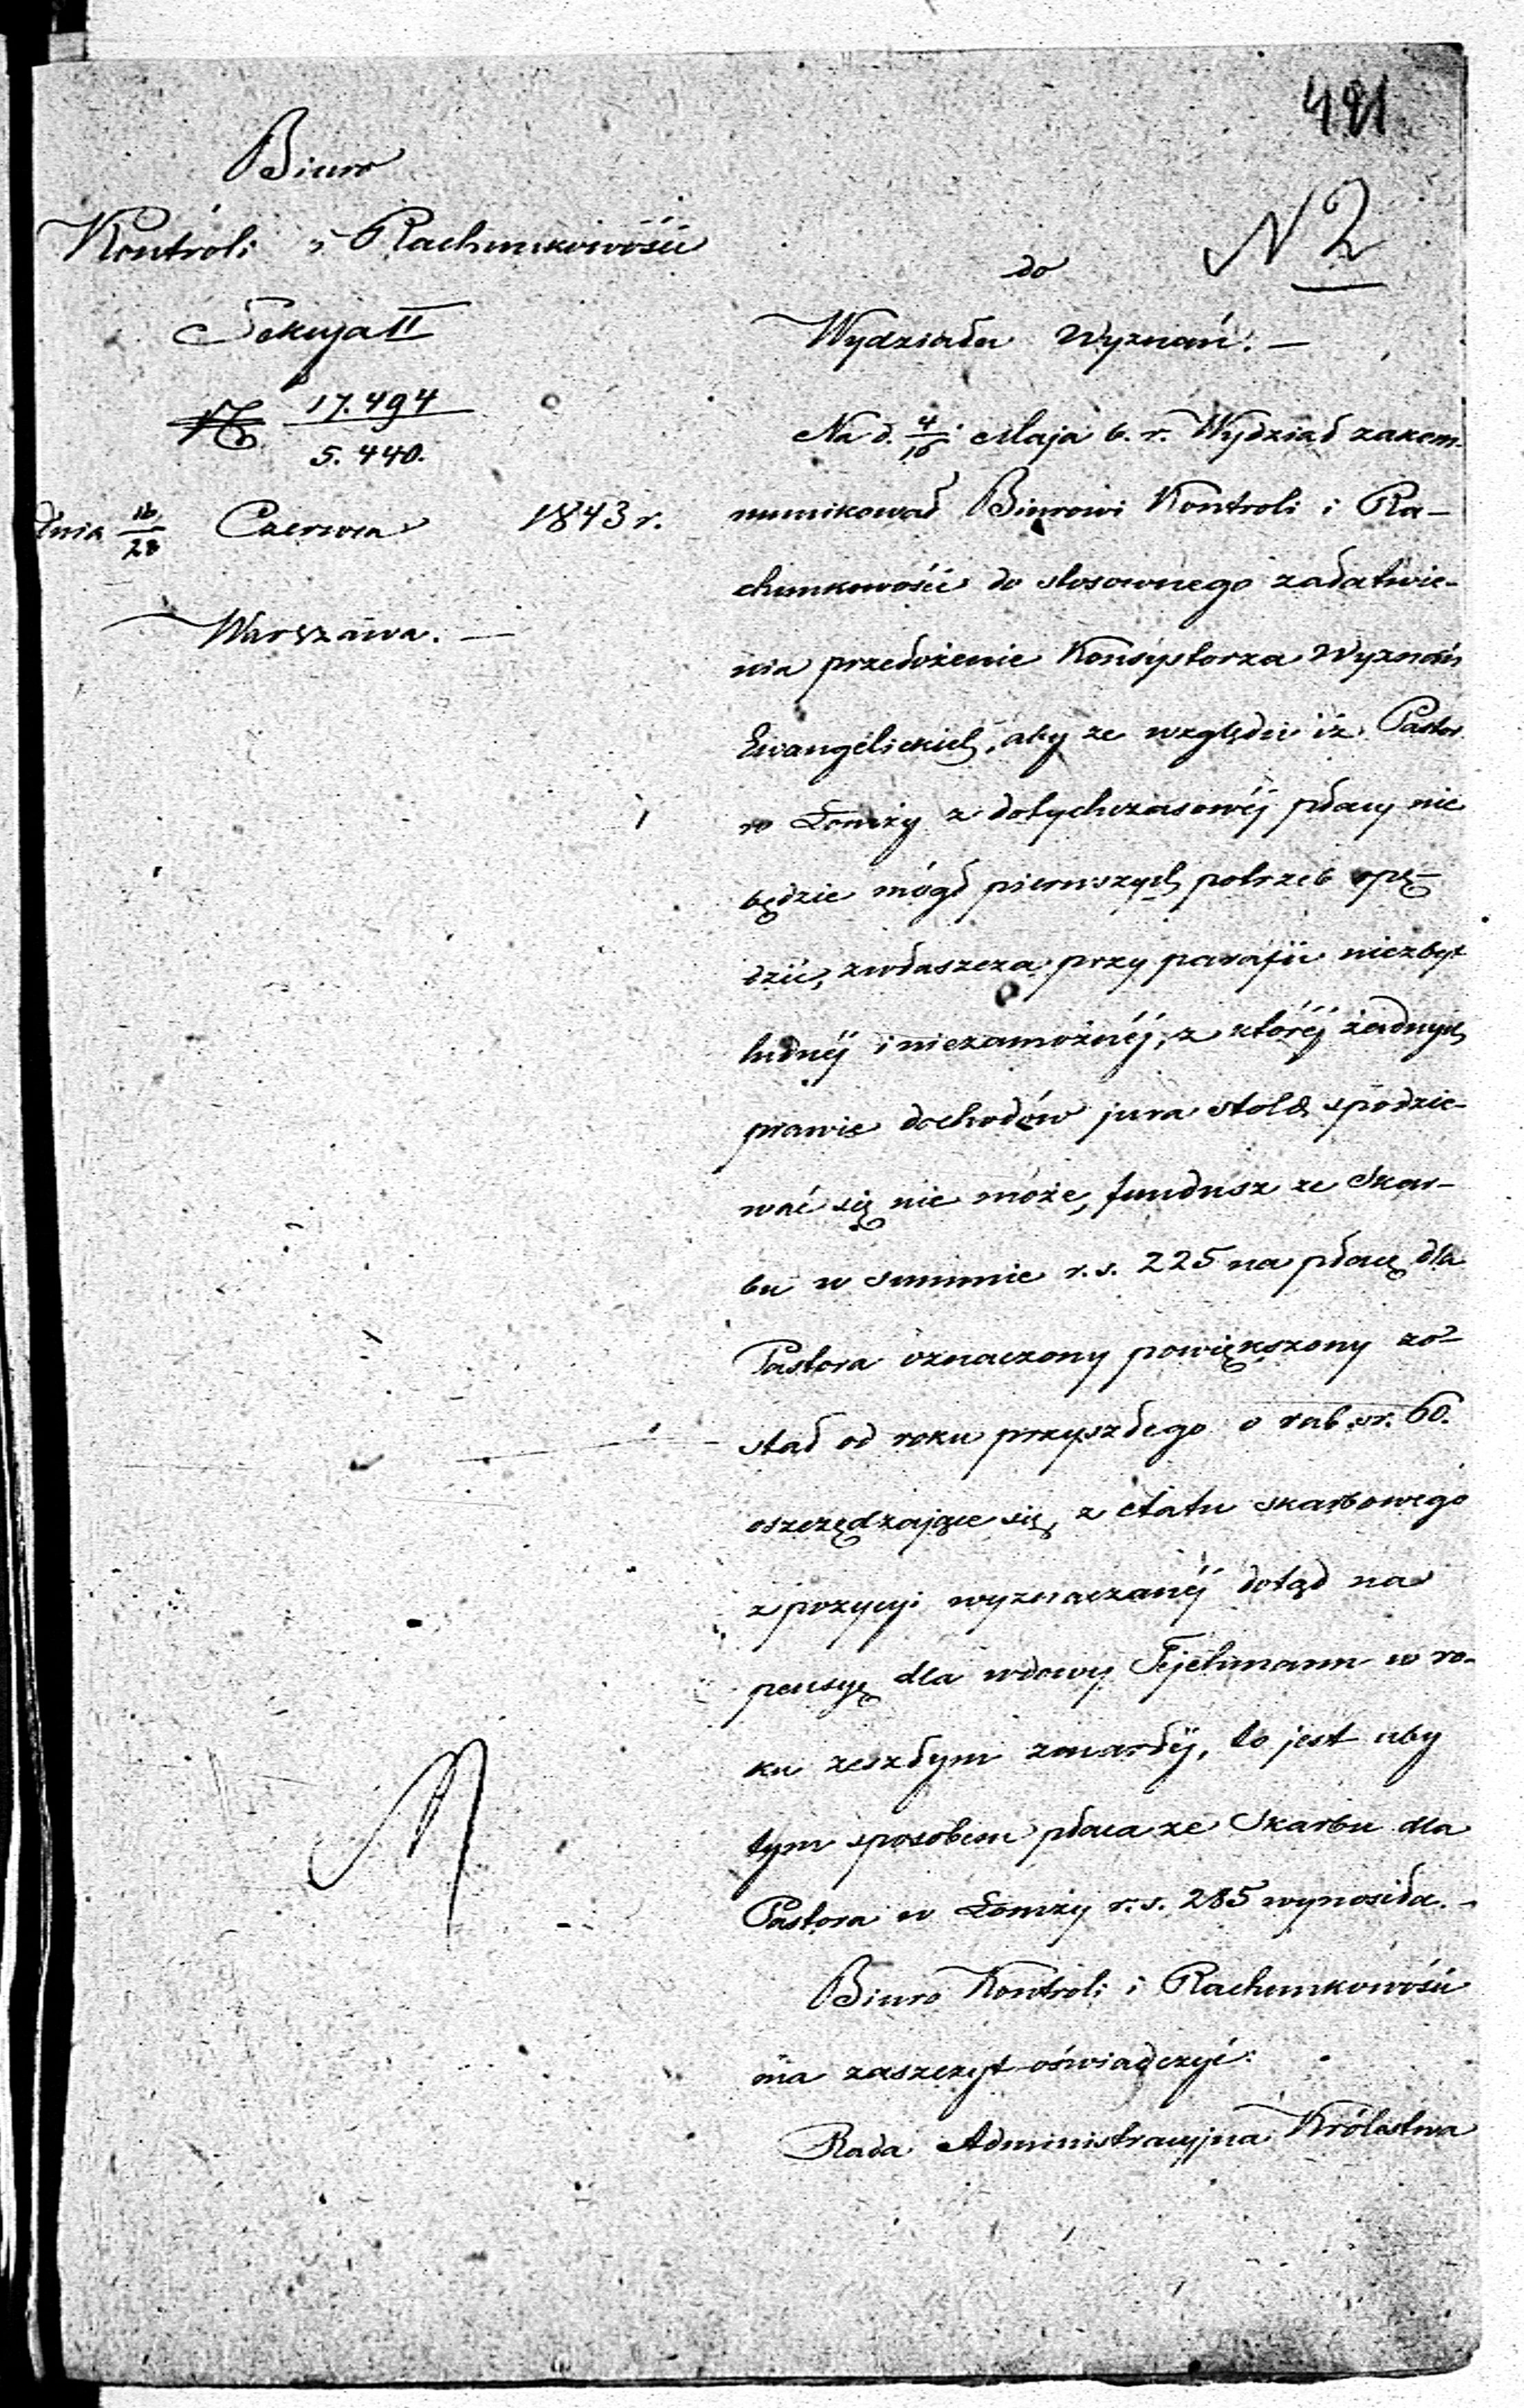 481
Biuro
Kontroli i Rachunkowości
Sekcja II
№ 17.494
5.440.
dnia 16/28 Czerwca 1843 r.
Warszawa. —
N 2
do
Wydziału Wyznań. —
Na d. 4/16 Maja b. r. Wydział zakom-
munikował Biurowi Kontroli i Ra-
chunkowości do stosownego załatwie-
nia przełożenie Konsystorza Wyznań
Ewangelickich, aby ze względu iż Pastor
w Łomży z dotychczasowéj płacy nie
będzie mógł pierwszych potrzeb opę-
dzić, zwłaszcza przy parafii niezbyt
ludnéj i niezamożnéj, z któréj żadnych
prawie dochodów jura stolæ spodzie-
wać się nie może, fundusz ze Skar-
bu w summie r. s. 225 na płacę dla
Pastora oznaczony powiększony zo-
stał od roku przyszłego o rub. sr. 60.
oszczędzające się z etatu skarbowego
z pozycyi wyznaczanéj dotąd na
pensyę dla wdowy Tejchmann w ro-
ku zeszłym zmarłéj, to jest aby
tym sposobem płaca ze Skarbu dla
Pastora w Łomży r. s. 285 wynosiła. -
Biuro Kontroli i Rachunkowości
ma zaszczyt oświadczyć:
Rada Administracyjna Królestwa